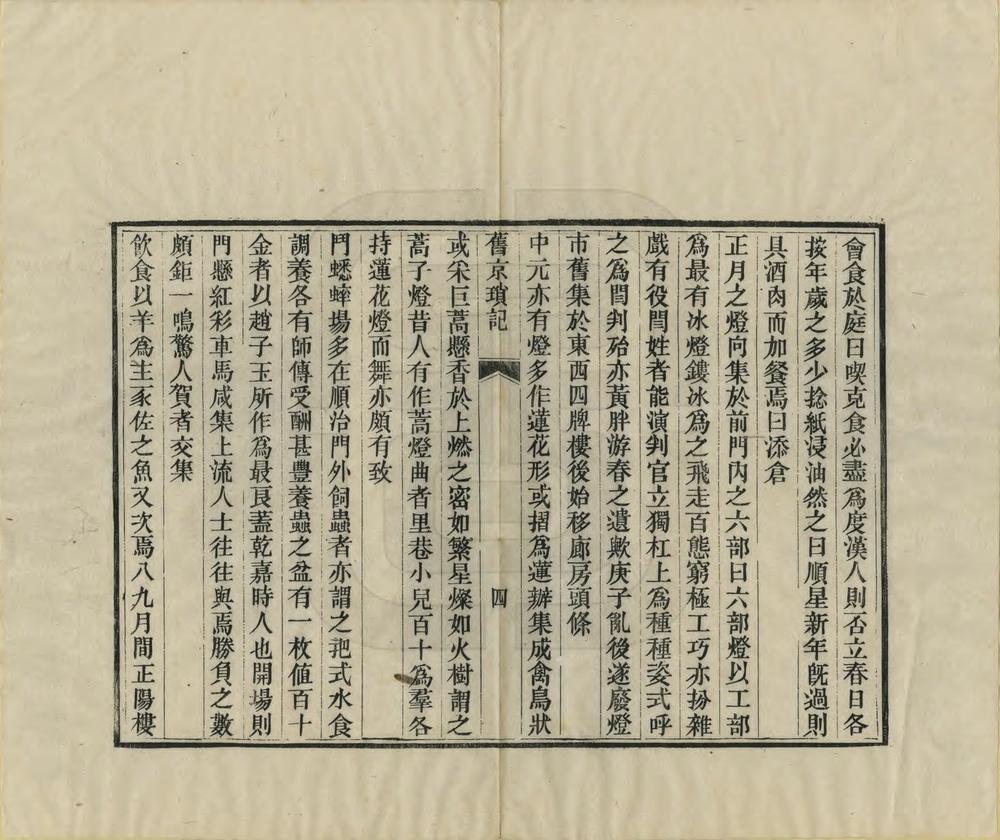 會食於庭曰喫克食必盡爲度漢人則否立春日各
按年歲之多少捻紙浸油然之曰順星新年旣過則
具酒肉而加餐焉曰添倉
正月之燈向集於前門内之六部曰六部燈以工部
爲最有冰燈鏤冰爲之飛走百態窮極工巧亦扮雜
戲有役閆姓者能演判官立獨杠上爲種種姿式呼
之爲閆判殆亦黃胖游春之遺歟庚子亂後遂廢燈
市舊集於東西四牌樓後始移廊房頭條
中元亦有燈多作蓮花形或摺爲蓮瓣集成禽鳥狀
舊京瑣記 四
或采巨蒿懸香於上燃之密如繁星燦如火樹謂之
蒿子燈昔人有作蒿燈曲者里巷小兒百十爲羣各
持蓮花燈而舞亦頗有致
鬥蟋蟀場多在順治門外飼蟲者亦謂之把式水食
調養各有師傳受酬甚豐養蟲之盆有一枚值百十
金者以趙子玉所作爲最良蓋乾嘉時人也開場則
門懸紅彩車馬咸集上流人士往往與焉勝負之數
頗鉅一鳴驚人賀者交集
飲食以羊爲主豕佐之魚又次焉八九月間正陽樓